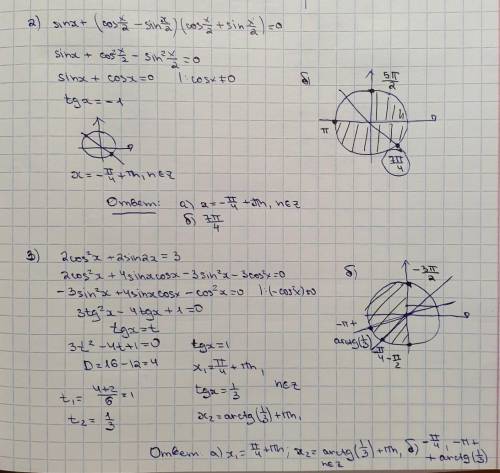 2) sinx + (cos x/2 - sin x/2)(cos x/2 + sin x/2) = 0
sinx + cos² x/2 - sin² x/2 = 0
sinx + cosx = 0 |: cosx ≠ 0
tgx = -1
x = -π/4 + πn, n∈z
Ответ: а) x = -π/4 + πn, n∈z
б) 7π/4
б)
5π/2
π
7π/4
3) 2cos²x + 2sin2x = 3
2cos²x + 4sinxcosx - 3sin²x - 3cos²x = 0
-3sin²x + 4sinxcosx - cos²x = 0 |: (-cos²x) ≠ 0
3tg²x - 4tgx + 1 = 0
tgx = t
3t² - 4t + 1 = 0
D = 16 - 12 = 4
t₁ = 4+2/6 = 1
t₂ = 1/3
tgx = 1
x₁ = π/4 + πn,
tgx = 1/3 n∈z
x₂ = arctg(1/3) + πn,
б)
-3π/2
-π +
arctg(1/3)
-π/2
Ответ а) x₁ = π/4 + πn; x₂ = arctg(1/3) + πn, б) -π/4, -π +
n∈z + arctg(1/3)